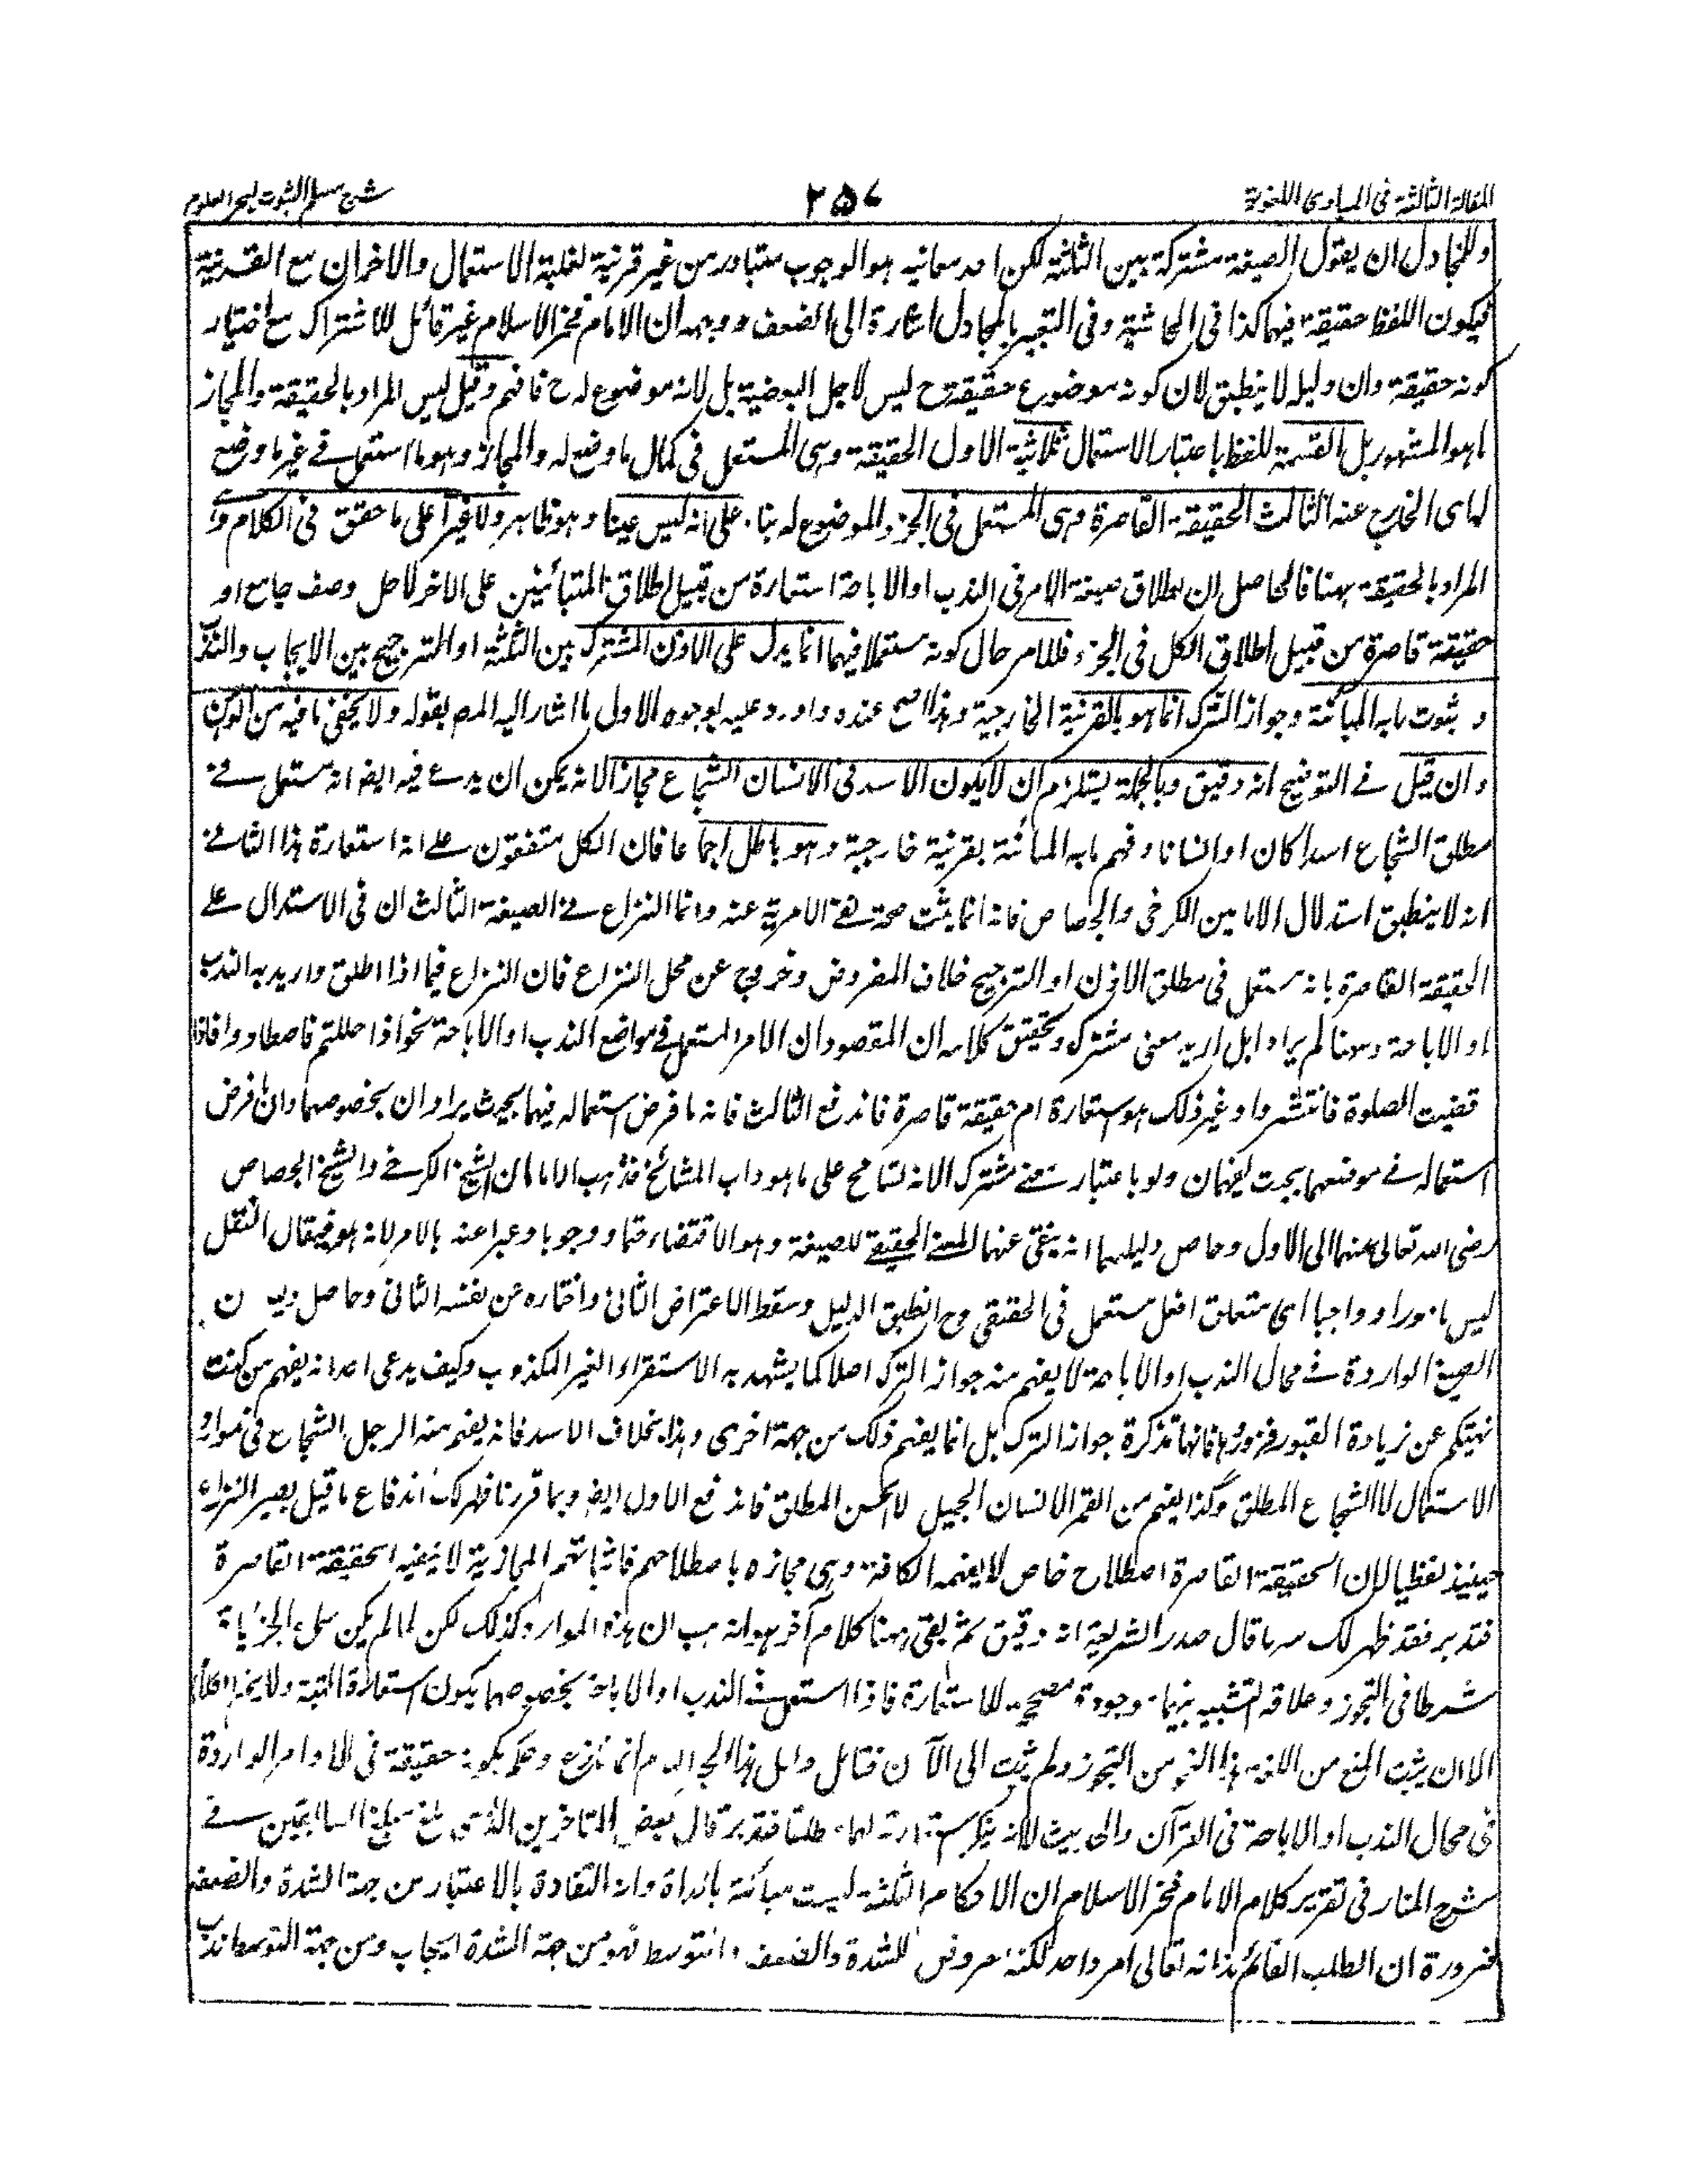 المقالة الثالثة فى المبادى اللغوية
٢٥٧
شرح مسلم الثبوت لبحر العلوم
وللمجادل ان يقول الصيغة مشتركة بين الثلثة لكن احد معانيه هو الوجوب متبادر من غير قرينة لغلبة الاستعمال والاخران مع القرينة
فيكون اللفظ حقيقة فيهما كذا فى الحاشية وفى التعبير بالمجادل اشارة الى الضعف ووجهه ان الامام فخر الاسلام غير قائل للاشتراك مع اختيار
كونه حقيقة وان دليله لا ينطبق لان كونه موضوع حقيقة ح ليس لاجل البعضية بل لانه موضوع له ح فافهم وقيل ليس المراد بالحقيقة والمجاز
ما هو المشهور بل القسمة للفظ باعتبار الاستعمال ثلاثية الاول الحقيقة وهى المستعمل فى كمال ما وضع له والمجاز وهو ما استعمل فے غير ما وضع
له اى الخارج عنه الثالث الحقيقة القاصرة وهى المستعمل فى الجزء الموضوع له بناء على انه ليس عينا وهو ظاهر ولا غيرا على ما حقق فى الكلام و
المراد بالحقيقة ههنا فالحاصل ان اطلاق صيغة الامر فى الندب او الاباحة استعارة من قبيل اطلاق المتبائنين على الاخر لاجل وصف جامع او
حقيقة قاصرة من قبيل اطلاق الكل فى الجزء فللامر حال كونه مستعملا فيهما انما يدل على الاذن المشترك بين الثلثة او الترجيح بين الايجاب والندب
و ثبوت ما به المبائنة وجواز الترك انما هو بالقرينة الخارجية وهذا اصح عنده واورد عليه بوجوه الاول ما اشار اليه المصـ بقوله ولا يخفى ما فيه من الوهن
وان قيل فے التوضيح انه دقيق وبالجملة يستلزم ان لا يكون الاسد فى الانسان الشجاع مجازا لانه يمكن ان يدعے فيه ايضا انه مستعمل فے
مطلق الشجاع اسدا كان او انسانا وفهم ما به المبائنة بقرينة خارجية وهو باطل اجماعا فان الكل متفقون علے انه استعارة هذا الثانے
انه لا ينطبق استدلال الامامين الكرخى والجصاص فانه انما يثبت صحة نفے الامرية عنه وانما النزاع فے الصيغة الثالث ان فى الاستدلال علے
الحقيقة القاصرة بانه مستعمل فى مطلق الاذن او الترجيح خلاف المفروض وخروج عن محل النزاع فان النزاع فيما اذا اطلق واريد به الندب
او الاباحة وههنا لم يرادا بل اريد معنى مشترك وتحقيق كلامه ان المقصود ان الامر المستعمل فے مواضع الندب او الاباحة نحو اذا حللتم فاصطادوا فاذا
قضيت الصلوة فانتشروا وغير ذلك هو استعارة ام حقيقة قاصرة فاندفع الثالث فانه ما فرض استعماله فيهما بحيث يرادان بخصوصهما وان فرض
استعماله فے موقعهما بحيث يفهمان ولو باعتبار معنے مشترك الا انه تسامح على ما هو داب المشائخ فذهب الامامان الشيخ الكرخے والشيخ الجصاص
رضى الله تعالى عنهما الى الاول وحاصل دليلهما انه ينتفى عنهما المعنے الحقيقے للصيغة وهو الاقتضاء حتما ووجوبا وعبرا عنه بالامر لانه هو فيقال النقل
ليس مامورا و واجبا اى متعلق افعل مستعمل فى الحقيقى وح انطبق الدليل وسقط الاعتراض الثانى واختاره عن نفسه الثانى وحاصل
الصيغ الواردة فے محال الندب او الاباحة لا يفهم منه جواز الترك اصلا كما يشهد به الاستقراء الغير المكذوب وكيف يدعى احد انه يفهم من كنت
نهيتكم عن زيارة القبور فزوروها فانها تذكرة جواز الترك بل انما يفهم ذلك من جهة اخرى وهذا بخلاف الاسد فانه يفهم منه الرجل الشجاع فى موارد
الاستعمال لا الشجاع المطلق وكذا يفهم من القمر الانسان الجميل لا الحسن المطلق فاندفع الاول ايضا وبما قررنا ظهر لك اندفاع ما قيل يصير النزاع
حينئذ لفظيا لان الحقيقة القاصرة اصطلاح خاص لا يفهمه الكافة وهى مجازه باصطلاحهم فاثباتهم المجازية لا ينفيه الحقيقة القاصرة
فتدبر فقد ظهر لك سر ما قال صدر الشريعة انه دقيق ثم بقى ههنا كلام آخر هو انه هب ان هذه الموارد كذلك لكن لما لم يكن سماع الجزئيات
شرطا فى التجوز وعلاقة التشبيه بينهما موجودة مصححة للاستعارة فاذا استعمل فے الندب او الاباحة بخصوصهما يكون استعارة البتة
الا ان يثبت المنع من الائمة هذا النحو من التجوز ولم يثبت الى الآن فتامل ولعل هذا الحبر الهمام انما نازع وحكم بكونه حقيقة فى الاوامر الواردة
فى محال الندب او الاباحة فى القرآن والحديث لا انه ينكر استعارته لهما مطلقا فتدبر قال بعض المتاخرين الذى بلغ مبلغ السابقين فے
شرح المنار فى تقرير كلام الامام فخر الاسلام ان الاحكام الثلثة ليست مبائنة بالذات وانما التفاوت بالاعتبار من جهة الشدة والضعف
ضرورة ان الطلب القائم بذاته تعالى امر واحد لكنه معروض للشدة والضعف والتوسط فهو من جهة الشدة ايجاب ومن جهة التوسط ندب